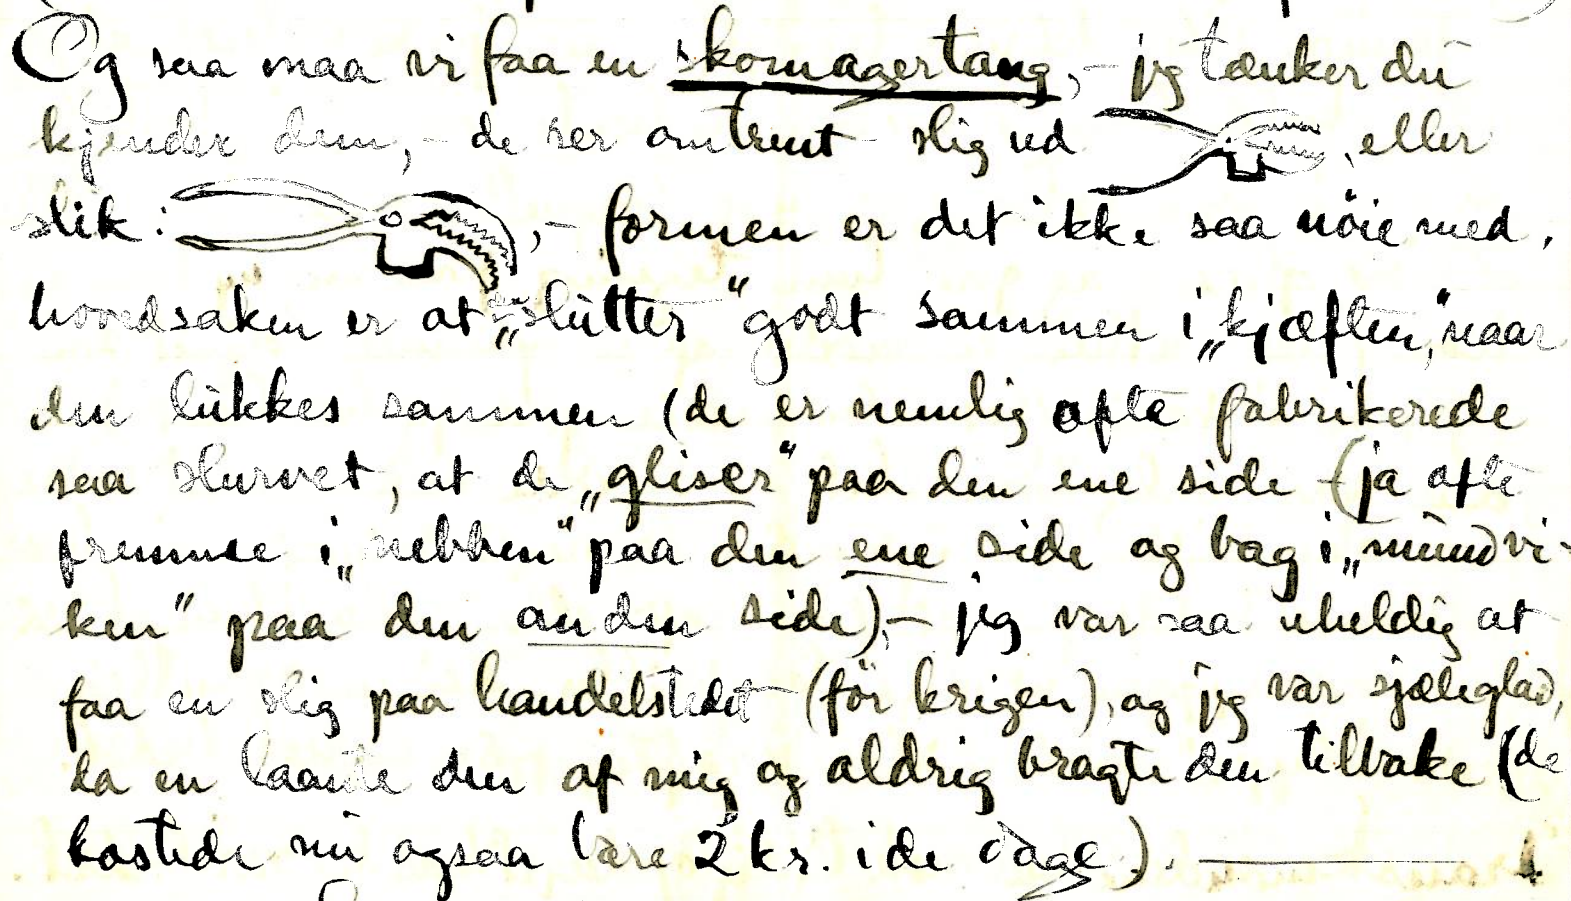 Og saa maa vi faa en skomagertang,- jeg tænker du
kjender dem,- de ser omtrent slig ud , eller
slik: ,- formen er det ikke saa nöie med,
hovedsaken er at „slutter" godt sammen i „kjæften," naar
den lukkes sammen (de er nemlig ofte fabrikerede
saa slurvet, at de „gliser" paa den ene side (ja ofte
fremme i „nebben" paa den ene side og bag i „mundvi-
ken" paa den anden side),- jeg var saa uheldig at
faa en slig paa handelstedet (för krigen), og jeg var sjæleglad,
da en laante den af mig og aldrig bragte den tilbake (de
kostede nu ogsaa bare 2 kr. i de dage).